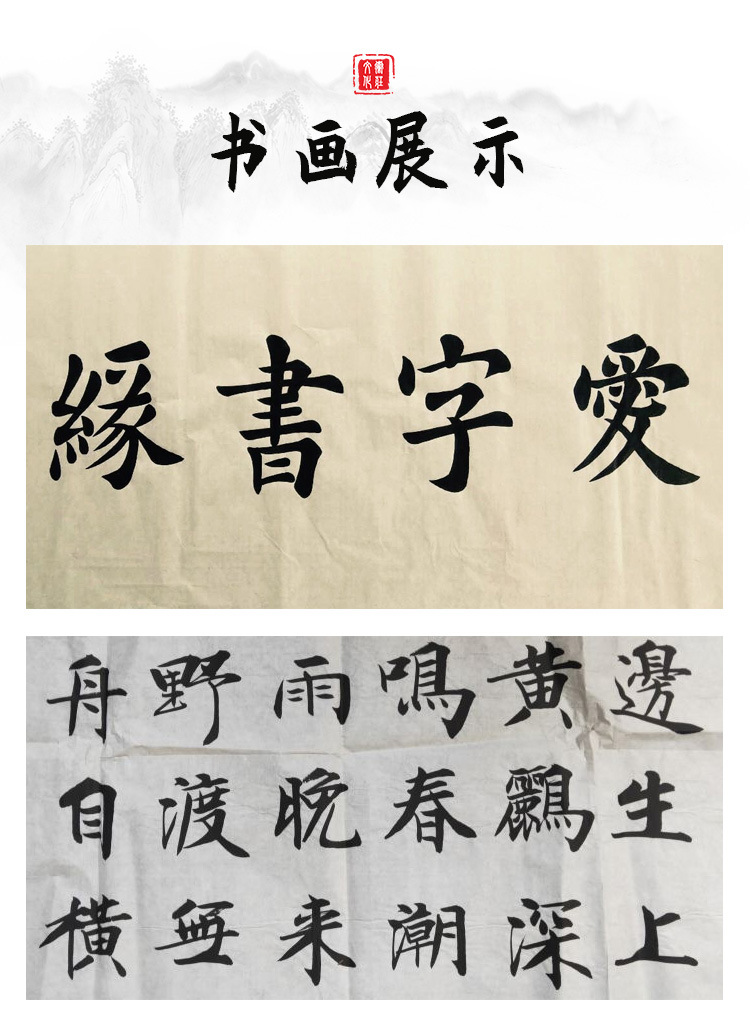 书画展示
愛字書緣
邊生上
黄鸝深
鳴春潮
雨晚来
野渡無
舟自橫